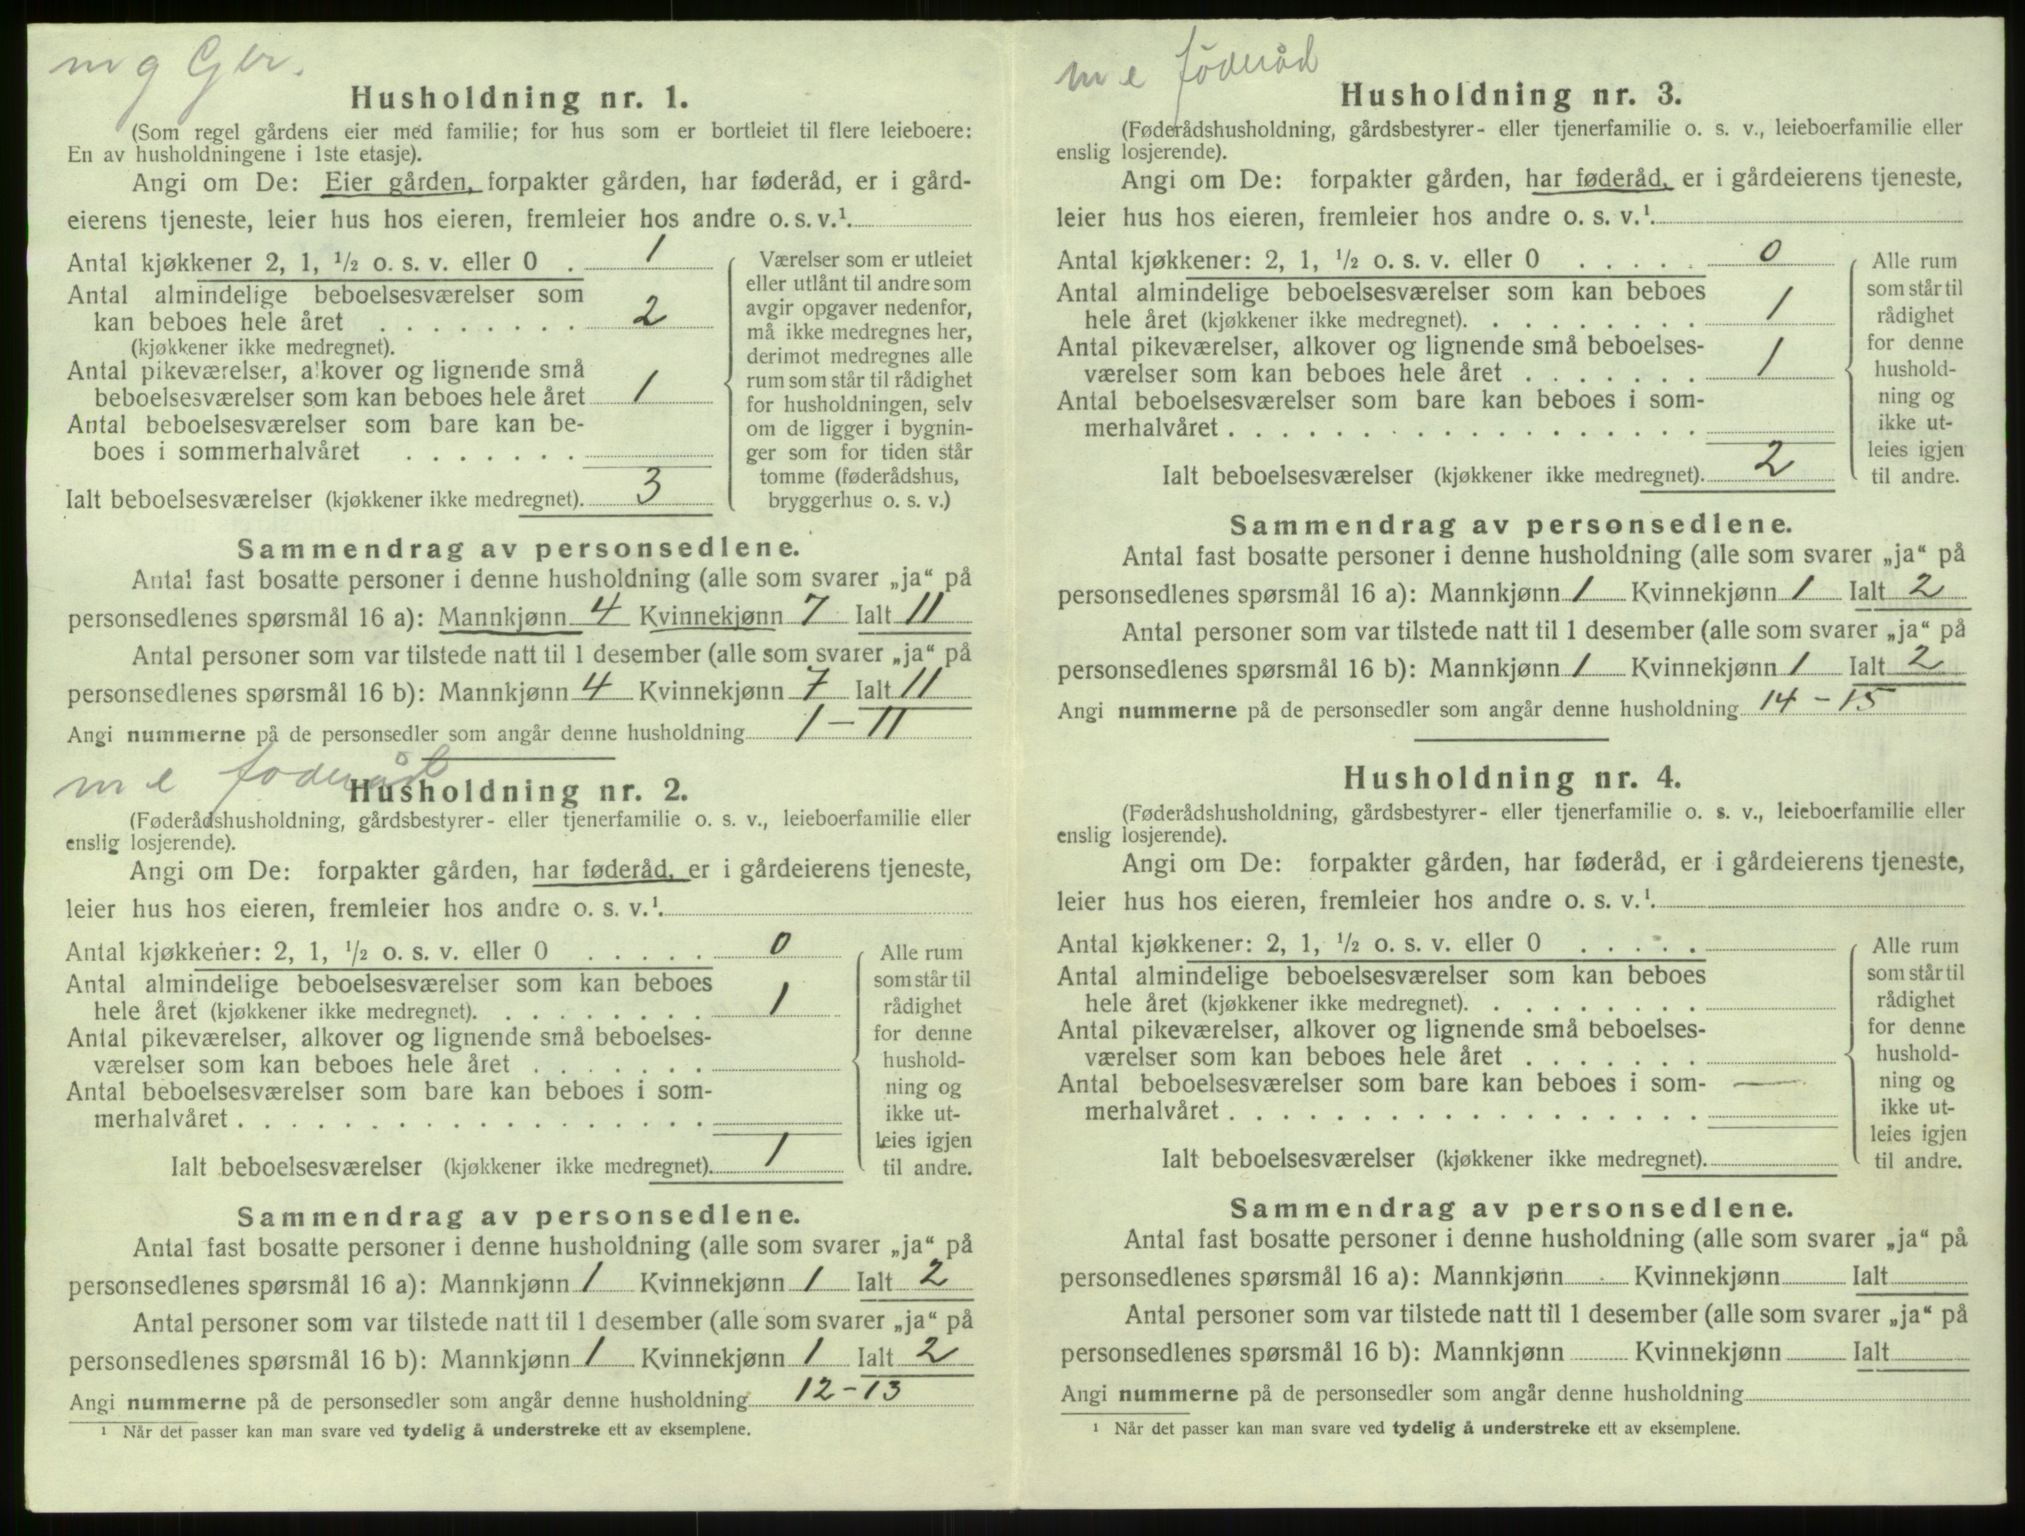 m g Ger.
Husholdning nr. 1.
(Som regel gårdens eier med familie; for hus som er bortleiet til flere leieboere:
En av husholdningene i 1ste etasje).
Angi om De: Eier gården, forpakter gården, har føderåd, er i gård-
eierens tjeneste, leier hus hos eieren, fremleier hos andre o. s. v.¹
Antal kjøkkener 2, 1, ½ o. s. v. eller 0 . 1
Antal almindelige beboelsesværelser som
kan beboes hele året . . . . . . . . 2
(kjøkkener ikke medregnet).
Antal pikeværelser, alkover og lignende små
beboelsesværelser som kan beboes hele året 1
Antal beboelsesværelser som bare kan be-
boes i sommerhalvåret . . . . . . .
Ialt beboelsesværelser (kjøkkener ikke medregnet). 3
Værelser som er utleiet
eller utlånt til andre som
avgir opgaver nedenfor,
må ikke medregnes her,
derimot medregnes alle
rum som står til rådighet
for husholdningen, selv
om de ligger i bygnin-
ger som for tiden står
tomme (føderådshus,
bryggerhus o. s. v.)
Sammendrag av personsedlene.
Antal fast bosatte personer i denne husholdning (alle som svarer „ja“ på
personsedlenes spørsmål 16 a): Mannkjønn 4 Kvinnekjønn 7 Ialt 11
Antal personer som var tilstede natt til 1 desember (alle som svarer „ja“ på
personsedlenes spørsmål 16 b): Mannkjønn 4 Kvinnekjønn 7 Ialt 11
Angi nummerne på de personsedler som angår denne husholdning 1 – 11
m e føderåd
Husholdning nr. 2.
(Føderådshusholdning, gårdsbestyrer- eller tjenerfamilie o. s. v., leieboerfamilie eller
enslig losjerende).
Angi om De: forpakter gården, har føderåd, er i gårdeierens tjeneste,
leier hus hos eieren, fremleier hos andre o. s. v.¹
Antal kjøkkener: 2, 1, ½ o. s. v. eller 0 . . . . . 0
Antal almindelige beboelsesværelser som kan beboes
hele året (kjøkkener ikke medregnet). . . . . . . . . 1
Antal pikeværelser, alkover og lignende små beboelses-
værelser som kan beboes hele året . . . . . . .
Antal beboelsesværelser som bare kan beboes i som-
merhalvåret . . . . . . . . . . . . . . . . . .
Ialt beboelsesværelser (kjøkkener ikke medregnet). 1
Alle rum
som står til
rådighet
for denne
hushold-
ning og
ikke ut-
leies igjen
til andre.
Sammendrag av personsedlene.
Antal fast bosatte personer i denne husholdning (alle som svarer „ja“ på
personsedlenes spørsmål 16 a): Mannkjønn 1 Kvinnekjønn 1 Ialt 2
Antal personer som var tilstede natt til 1 desember (alle som svarer „ja“ på
personsedlenes spørsmål 16 b): Mannkjønn 1 Kvinnekjønn 1 Ialt 2
Angi nummerne på de personsedler som angår denne husholdning 12 – 13
¹ Når det passer kan man svare ved tydelig å understreke ett av eksemplene.
m e føderåd
Husholdning nr. 3.
(Føderådshusholdning, gårdsbestyrer- eller tjenerfamilie o. s. v., leieboerfamilie eller
enslig losjerende).
Angi om De: forpakter gården, har føderåd, er i gårdeierens tjeneste,
leier hus hos eieren, fremleier hos andre o. s. v.¹
Antal kjøkkener: 2, 1, ½ o. s. v. eller 0 . . . . . 0
Antal almindelige beboelsesværelser som kan beboes
hele året (kjøkkener ikke medregnet). . . . . . . . . 1
Antal pikeværelser, alkover og lignende små beboelses-
værelser som kan beboes hele året . . . . . . . 1
Antal beboelsesværelser som bare kan beboes i som-
merhalvåret . . . . . . . . . . . . . . . . . .
Ialt beboelsesværelser (kjøkkener ikke medregnet). 2
Alle rum
som står til
rådighet
for denne
hushold-
ning og
ikke ut-
leies igjen
til andre.
Sammendrag av personsedlene.
Antal fast bosatte personer i denne husholdning (alle som svarer „ja“ på
personsedlenes spørsmål 16 a): Mannkjønn 1 Kvinnekjønn 1 Ialt 2
Antal personer som var tilstede natt til 1 desember (alle som svarer „ja“ på
personsedlenes spørsmål 16 b): Mannkjønn 1 Kvinnekjønn 1 Ialt 2
Angi nummerne på de personsedler som angår denne husholdning 14 – 15
Husholdning nr. 4.
(Føderådshusholdning, gårdsbestyrer- eller tjenerfamilie o. s. v., leieboerfamilie eller
enslig losjerende).
Angi om De: forpakter gården, har føderåd, er i gårdeierens tjeneste,
leier hus hos eieren, fremleier hos andre o. s. v.¹
Antal kjøkkener: 2, 1, ½ o. s. v. eller 0 . . . . .
Antal almindelige beboelsesværelser som kan beboes
hele året (kjøkkener ikke medregnet). . . . . . . . .
Antal pikeværelser, alkover og lignende små beboelses-
værelser som kan beboes hele året . . . . . . .
Antal beboelsesværelser som bare kan beboes i som- —
merhalvåret . . . . . . . . . . . . . . . . . .
Ialt beboelsesværelser (kjøkkener ikke medregnet).
Alle rum
som står til
rådighet
for denne
hushold-
ning og
ikke ut-
leies igjen
til andre.
Sammendrag av personsedlene.
Antal fast bosatte personer i denne husholdning (alle som svarer „ja“ på
personsedlenes spørsmål 16 a): Mannkjønn Kvinnekjønn Ialt
Antal personer som var tilstede natt til 1 desember (alle som svarer „ja“ på
personsedlenes spørsmål 16 b): Mannkjønn Kvinnekjønn Ialt
Angi nummerne på de personsedler som angår denne husholdning
¹ Når det passer kan man svare ved tydelig å understreke ett av eksemplene.